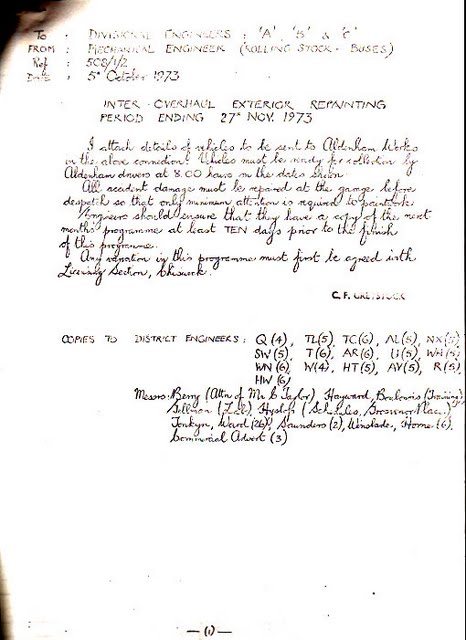 TO : DIVISIONAL ENGINEERS : 'A', 'B' & 'C'
FROM : MECHANICAL ENGINEER (ROLLING STOCK - BUSES)
Ref : 508/1/2
DATE : 5th October 1973
INTER-OVERHAUL EXTERIOR REPAINTING
PERIOD ENDING 27th NOV. 1973
I attach details of vehicles to be sent to Aldenham Works
in the above connection. Vehicles must be ready for collection by
Aldenham drivers at 8.00 hours on the dates shewn.
All accident damage must be repaired at the garage before
despatch so that only minimum attention is required to paintwork.
Engineers should ensure that they have a copy of the next
months programme at least TEN days prior to the finish
of this programme.
Any variation in this programme must first be agreed with
Licensing Section, Chiswick.
C. F. GREYSTOCK
COPIES TO DISTRICT ENGINEERS : Q(4), TL(5), TC(6), AL(6), NX(5)
SW(5), T(6), AR(6), U(5), WH(5)
WN(6), W(4), HT(5), AV(5), R(5)
HW(6)
Messrs: Berry (Attn of Mr C Taylor), Hayward, (Training)
Tillman, Hyslop (Schedules, Grosvenor Place)
Tonkyn, Ward (26), Saunders (2), Winslade, Horne (6),
Commercial Advert (3)
—(1)—